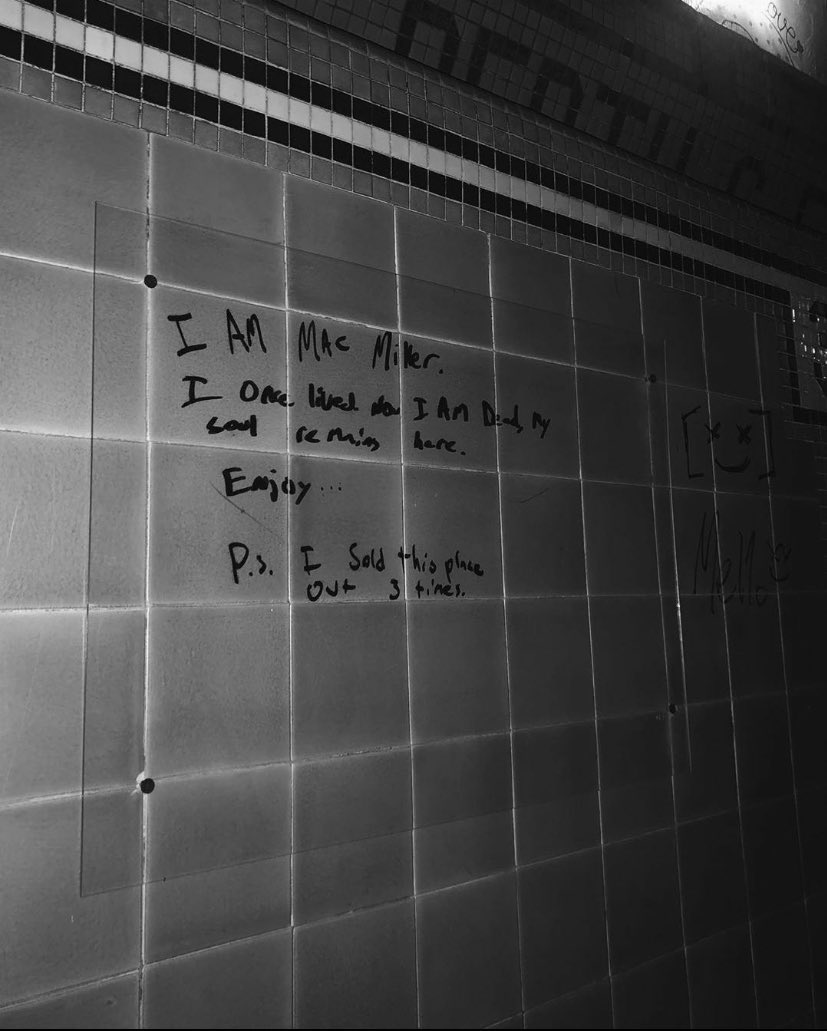 I AM MAC Miller.
I Once lived now I AM Dead, My
soul remains here.
Enjoy...
P.s. I Sold this place
Out 3 times.
[x x]
Mello